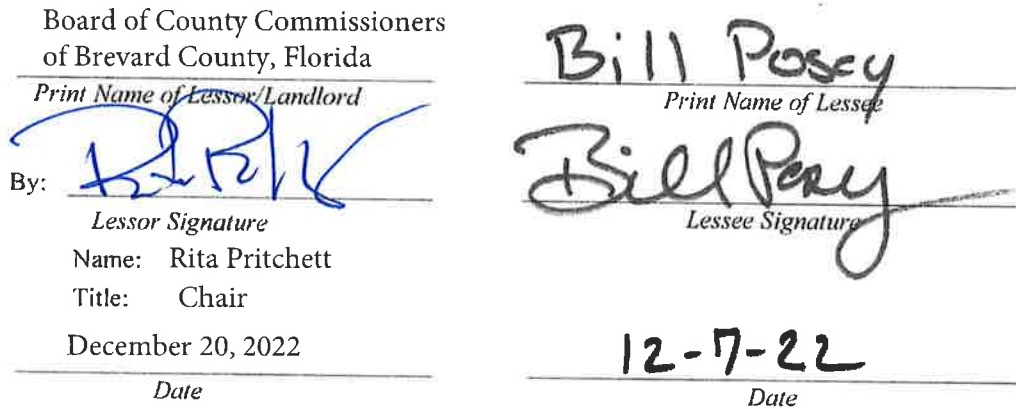 Board of County Commissioners
of Brevard County, Florida
Print Name of Lessor/Landlord
By:
Lessor Signature
Name: Rita Pritchett
Title: Chair
December 20, 2022
Date
Bill Posey
Print Name of Lessee
Bill Posey
Lessee Signature
12-7-22
Date